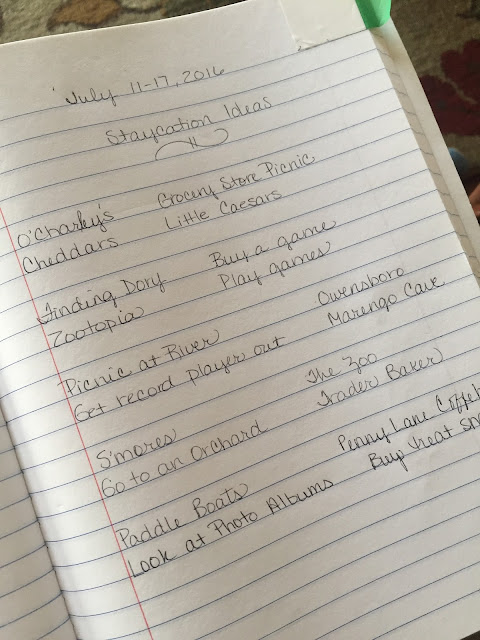 July 11-17, 2016
Staycation Ideas
O'Charley's Grocery Store Picnic
Cheddars Little Caesars
Finding Dory Buy a game
Zootopia Play games
Picnic at River Owensboro
Get record player out Marengo Cave
S'mores The Zoo
Go to an Orchard Trader Baker
Paddle Boats Penny Lane
Look at Photo Albums Buy